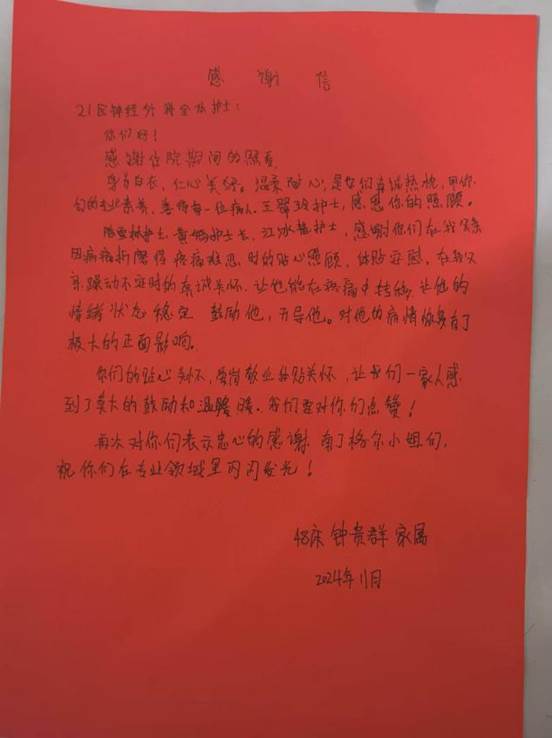 感谢信
21区神经外科全体护士：
你们好！
感谢住院期间的照看
身着白衣，仁心美好。温柔耐心，是你们真诚热忱，用你
们的专业素养，善待每一位病人。王翠玲护士，感恩你的照顾。
护士，黄 护士长，江冰 护士，感谢你们在我父亲
因病痛折磨得疼痛难忍时的贴心照顾，体贴安慰，在我父
亲躁动不安时的真诚关怀，让他能在病痛中转移，让他的
情绪状态稳定 鼓励他，开导他。对他的病情恢复有了
极大的正面影响。
你们的贴心关怀，爱岗敬业体贴关怀，让我们一家人感
到了莫大的鼓励和温暖。我们要对你们点赞！
再次对你们表示忠心的感谢 南丁格尔小姐们，
祝你们在专业领域里闪闪发光！
48床 钟贵群 家属
2024年11月